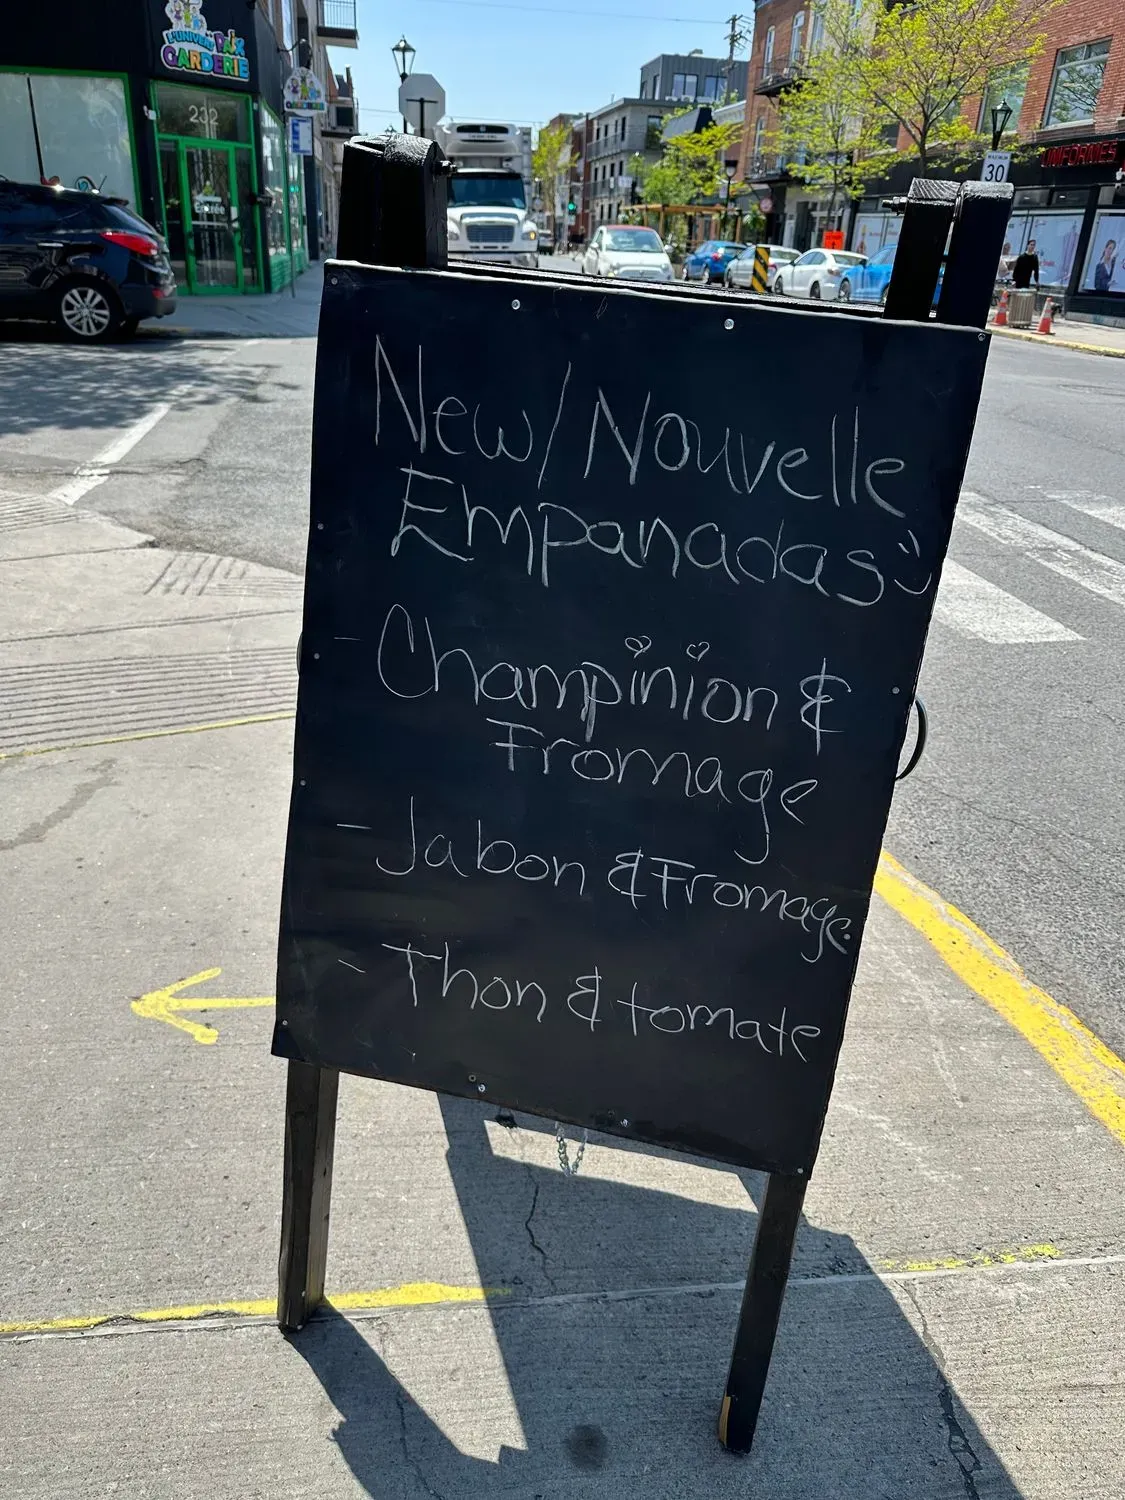 L'UNIVERS PAIX
GARDERIE
232
Entrée
MAXIMUM
30
UNIFORMES
New/Nouvelle
Empanadas
- Champinion &
Fromage
- Jabon & Fromage.
- Thon & tomate